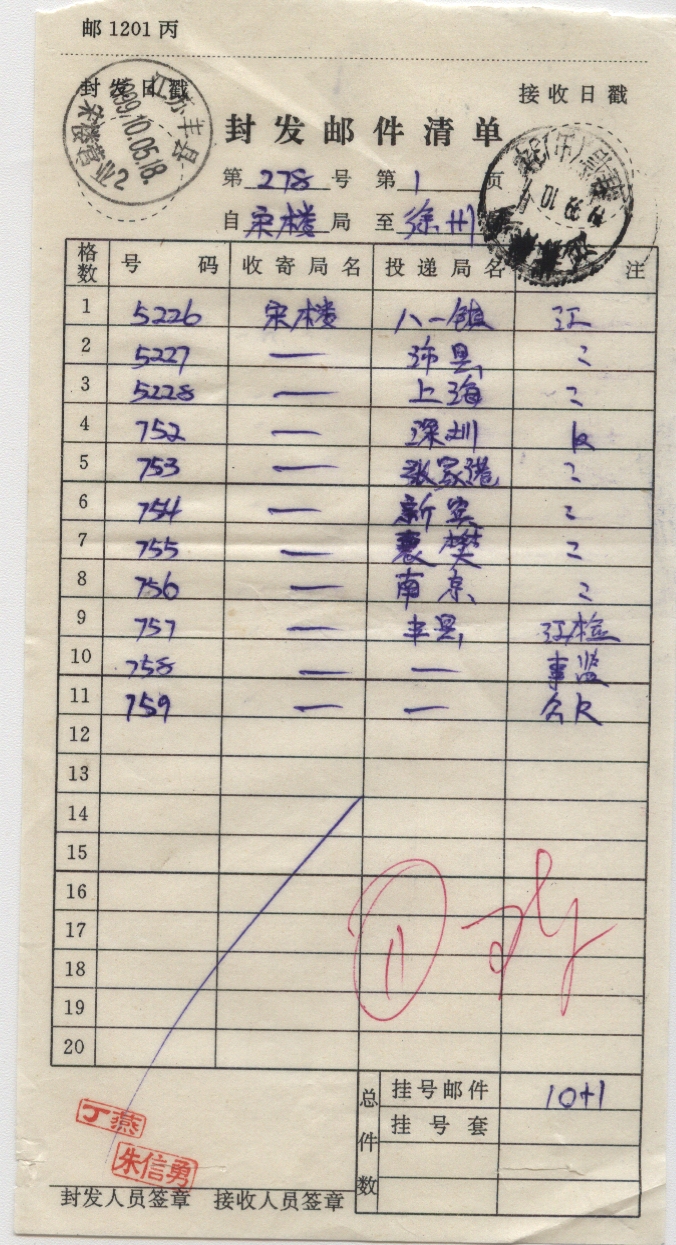 邮1201丙
封发日戳
接收日戳
江苏丰县
1999.10.05.18.
宋楼营业2
封发邮件清单
第278号 第1页
自宋楼局 至徐州
格数 号码 收寄局名 投递局名 注
1 5226 宋楼 八一镇 江
2 5227 — 沛县 〃
3 5228 — 上海 〃
4 752 — 深圳
5 753 — 张家港 〃
6 754 — 新宾 〃
7 755 — 襄樊 〃
8 756 — 南京 〃
9 757 — 丰县 江检
10 758 — — 事监
11 759 — —
12
13
14
15
16
17
18
19
20
11
总件数
挂号邮件 10+1
挂号套
丁燕
朱信勇
封发人员签章 接收人员签章